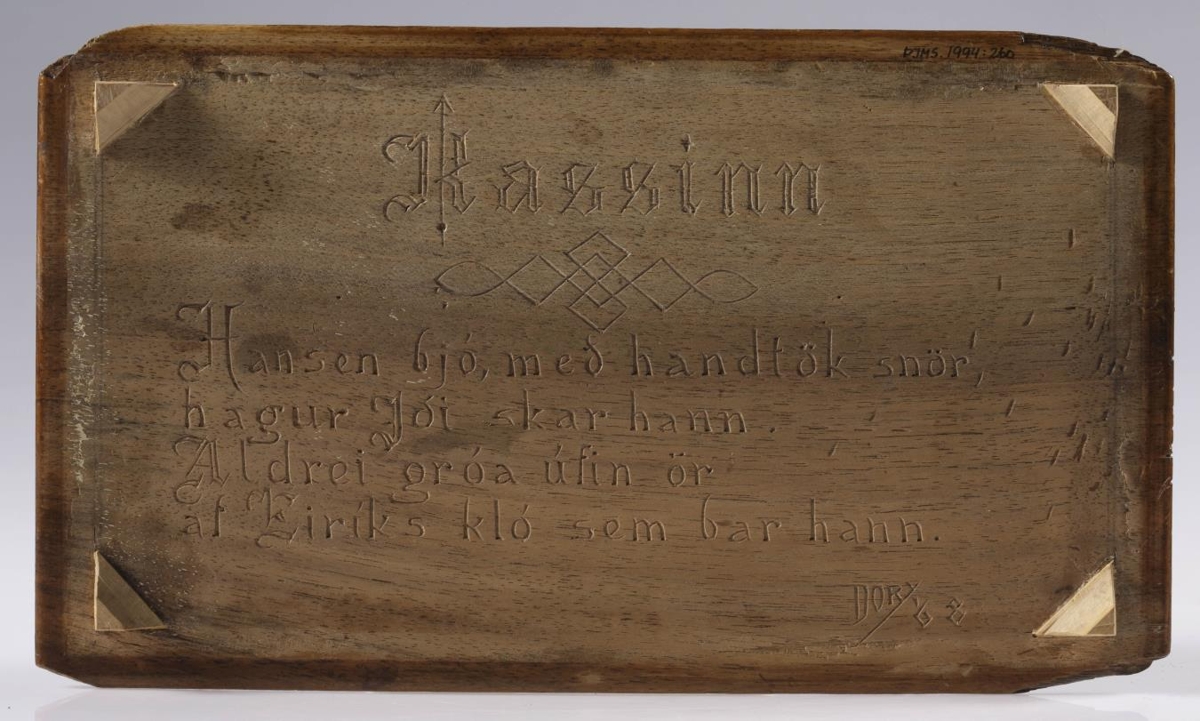 ÞJMS. 1994:260
Kassinn
Hansen bjó, með handtök snör,
hagur Jói skar hann.
Aldrei gróa úfin ör
af Eiríks kló sem bar hann.
DORY '68